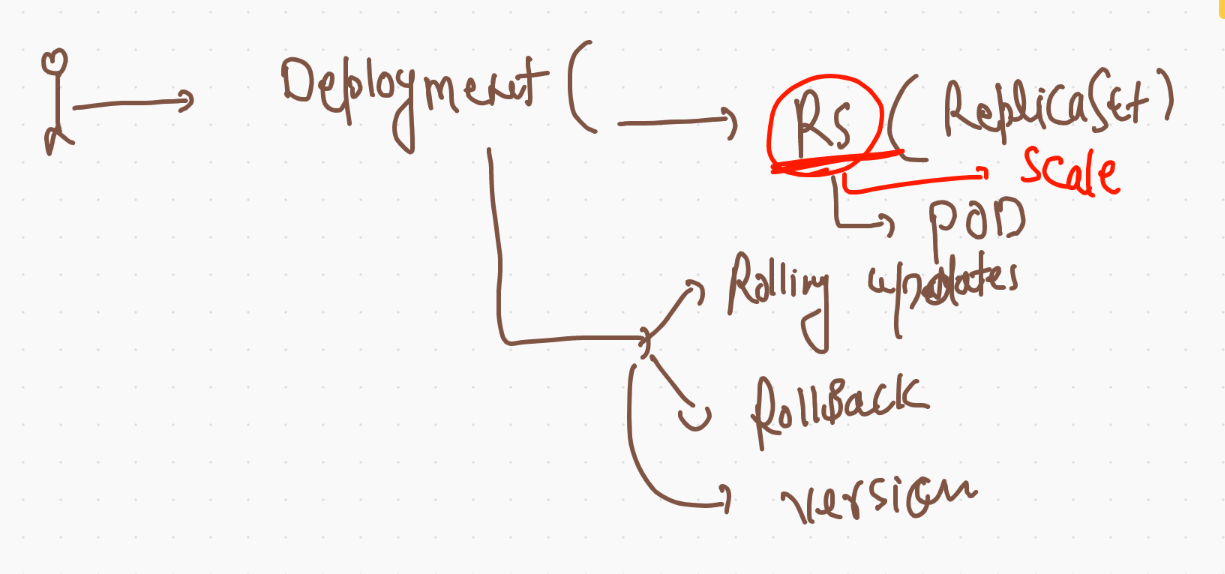 Deployment (
RS (ReplicaSet)
Scale
POD
Rolling updates
RollBack
version